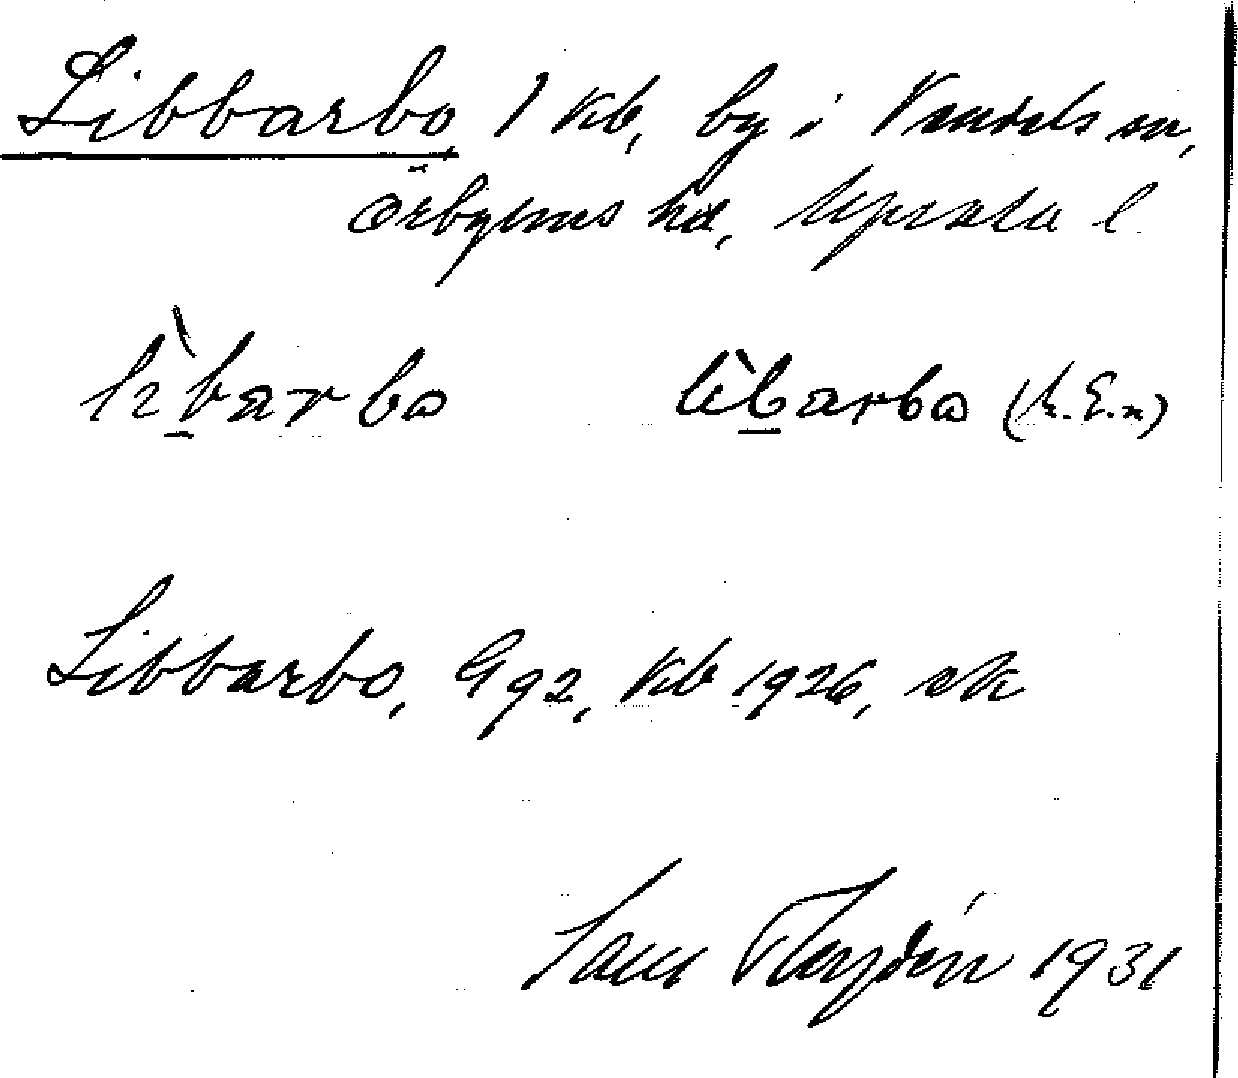 Libbarbo 1 kb, by i Vendels sn,
Örbyhus hd, Upsala l.
lìbarbo lìbarbo (h. E.n)
Libbarbo, G 92, kb 1926, ek
Sam Flodén 1931